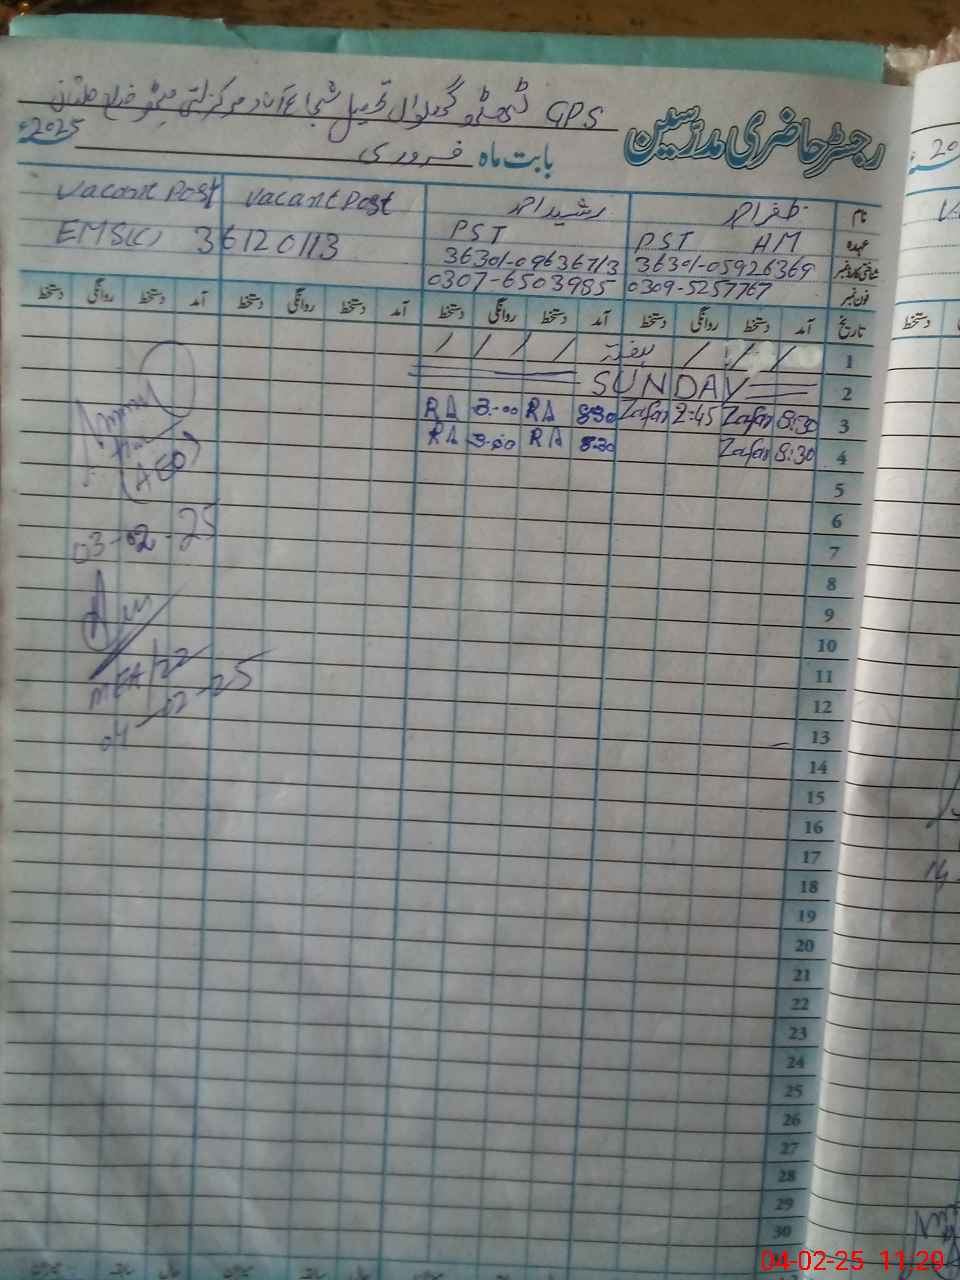 رجسٹر حاضری مدرسین
GPS ٹھٹھہ گھلواں تحصیل شجاع آباد مرکز لتی ضلع ملتان
بابت ماہ فروری 2025ء
نام ظفر احمد رشید احمد Vacant Post Vacant Post
عہدہ PST HM PST EMIS(C) 36120113
شناختی کارڈ نمبر 36301-05926369 36301-09636713
فون نمبر 0309-5257767 0307-6503985
تاریخ آمد دستخط روانگی دستخط آمد دستخط روانگی دستخط آمد دستخط روانگی دستخط آمد دستخط روانگی دستخط
1 / / / ہفتہ / / / /
2 SUNDAY
3 8:30 Zafar 2:45 Zafar 8:30 RA 3:00 RA
4 8:30 Zafar 8:30 RA 3:00 RA
5
6
7
8
9
10
11
12
13
14
15
16
17
18
19
20
21
22
23
24
25
26
27
28
29
30
(AEO)
03-02-25
MEA/22
04-02-25
14
04-02-25 11:29